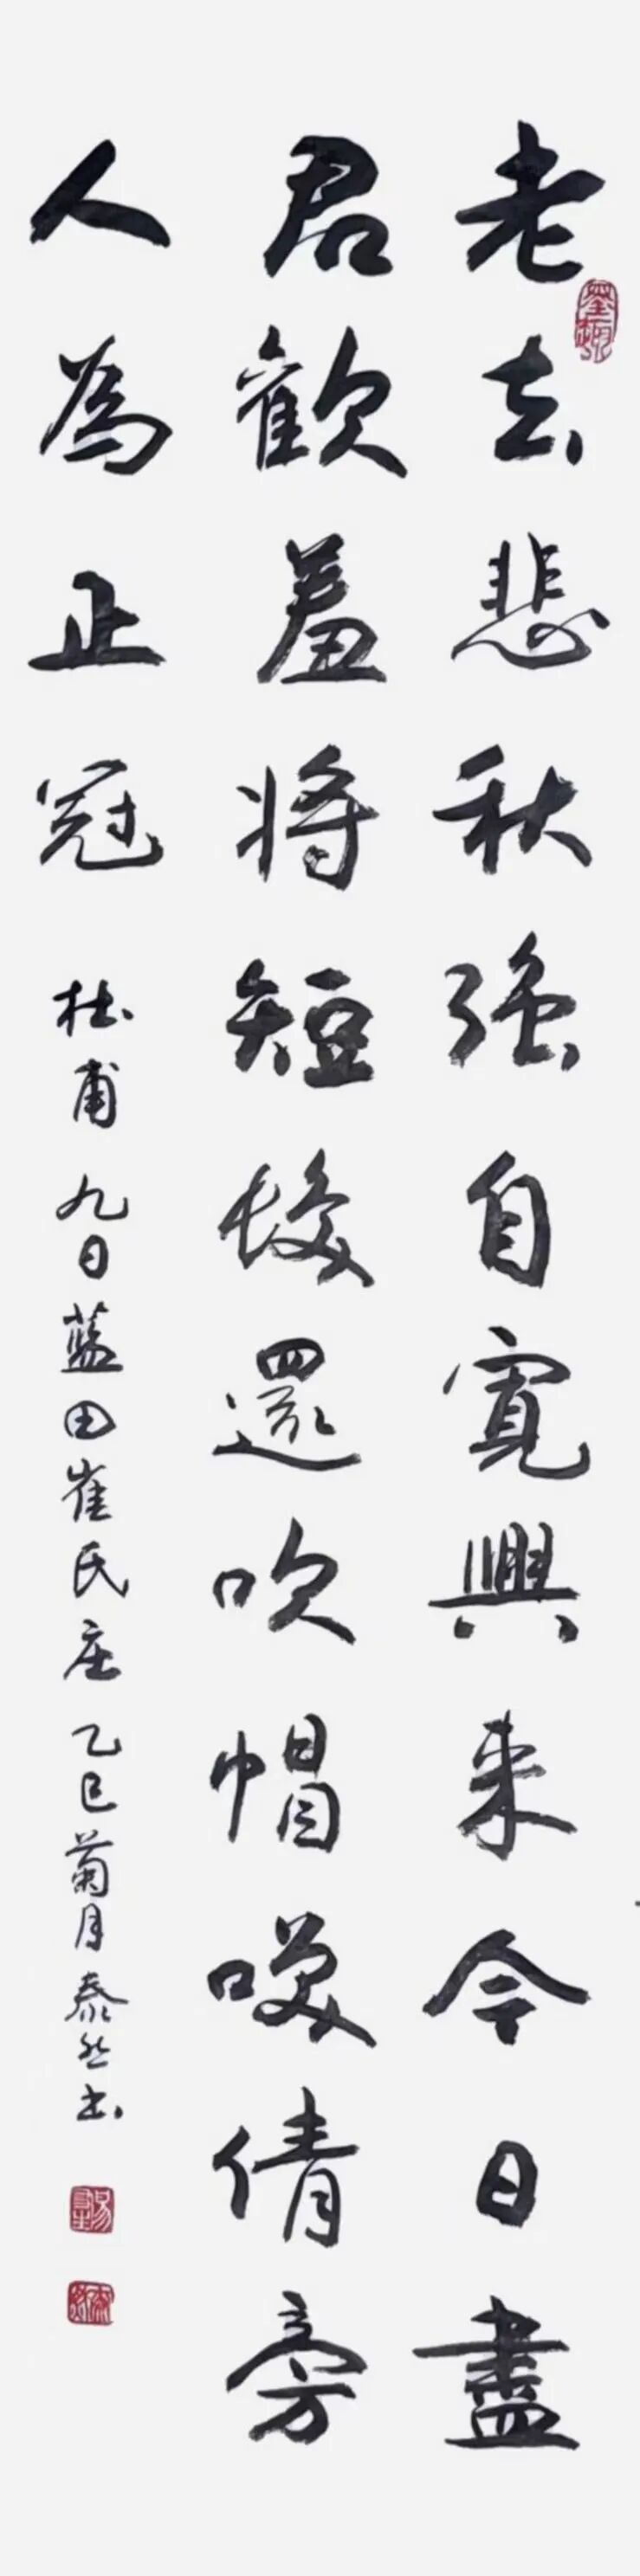 老去悲秋强自寬興来今日盡
君歡羞将短髮還吹帽咲倩旁
人為正冠
杜甫 九日藍田崔氏庄 乙巳菊月泰然书
墨趣